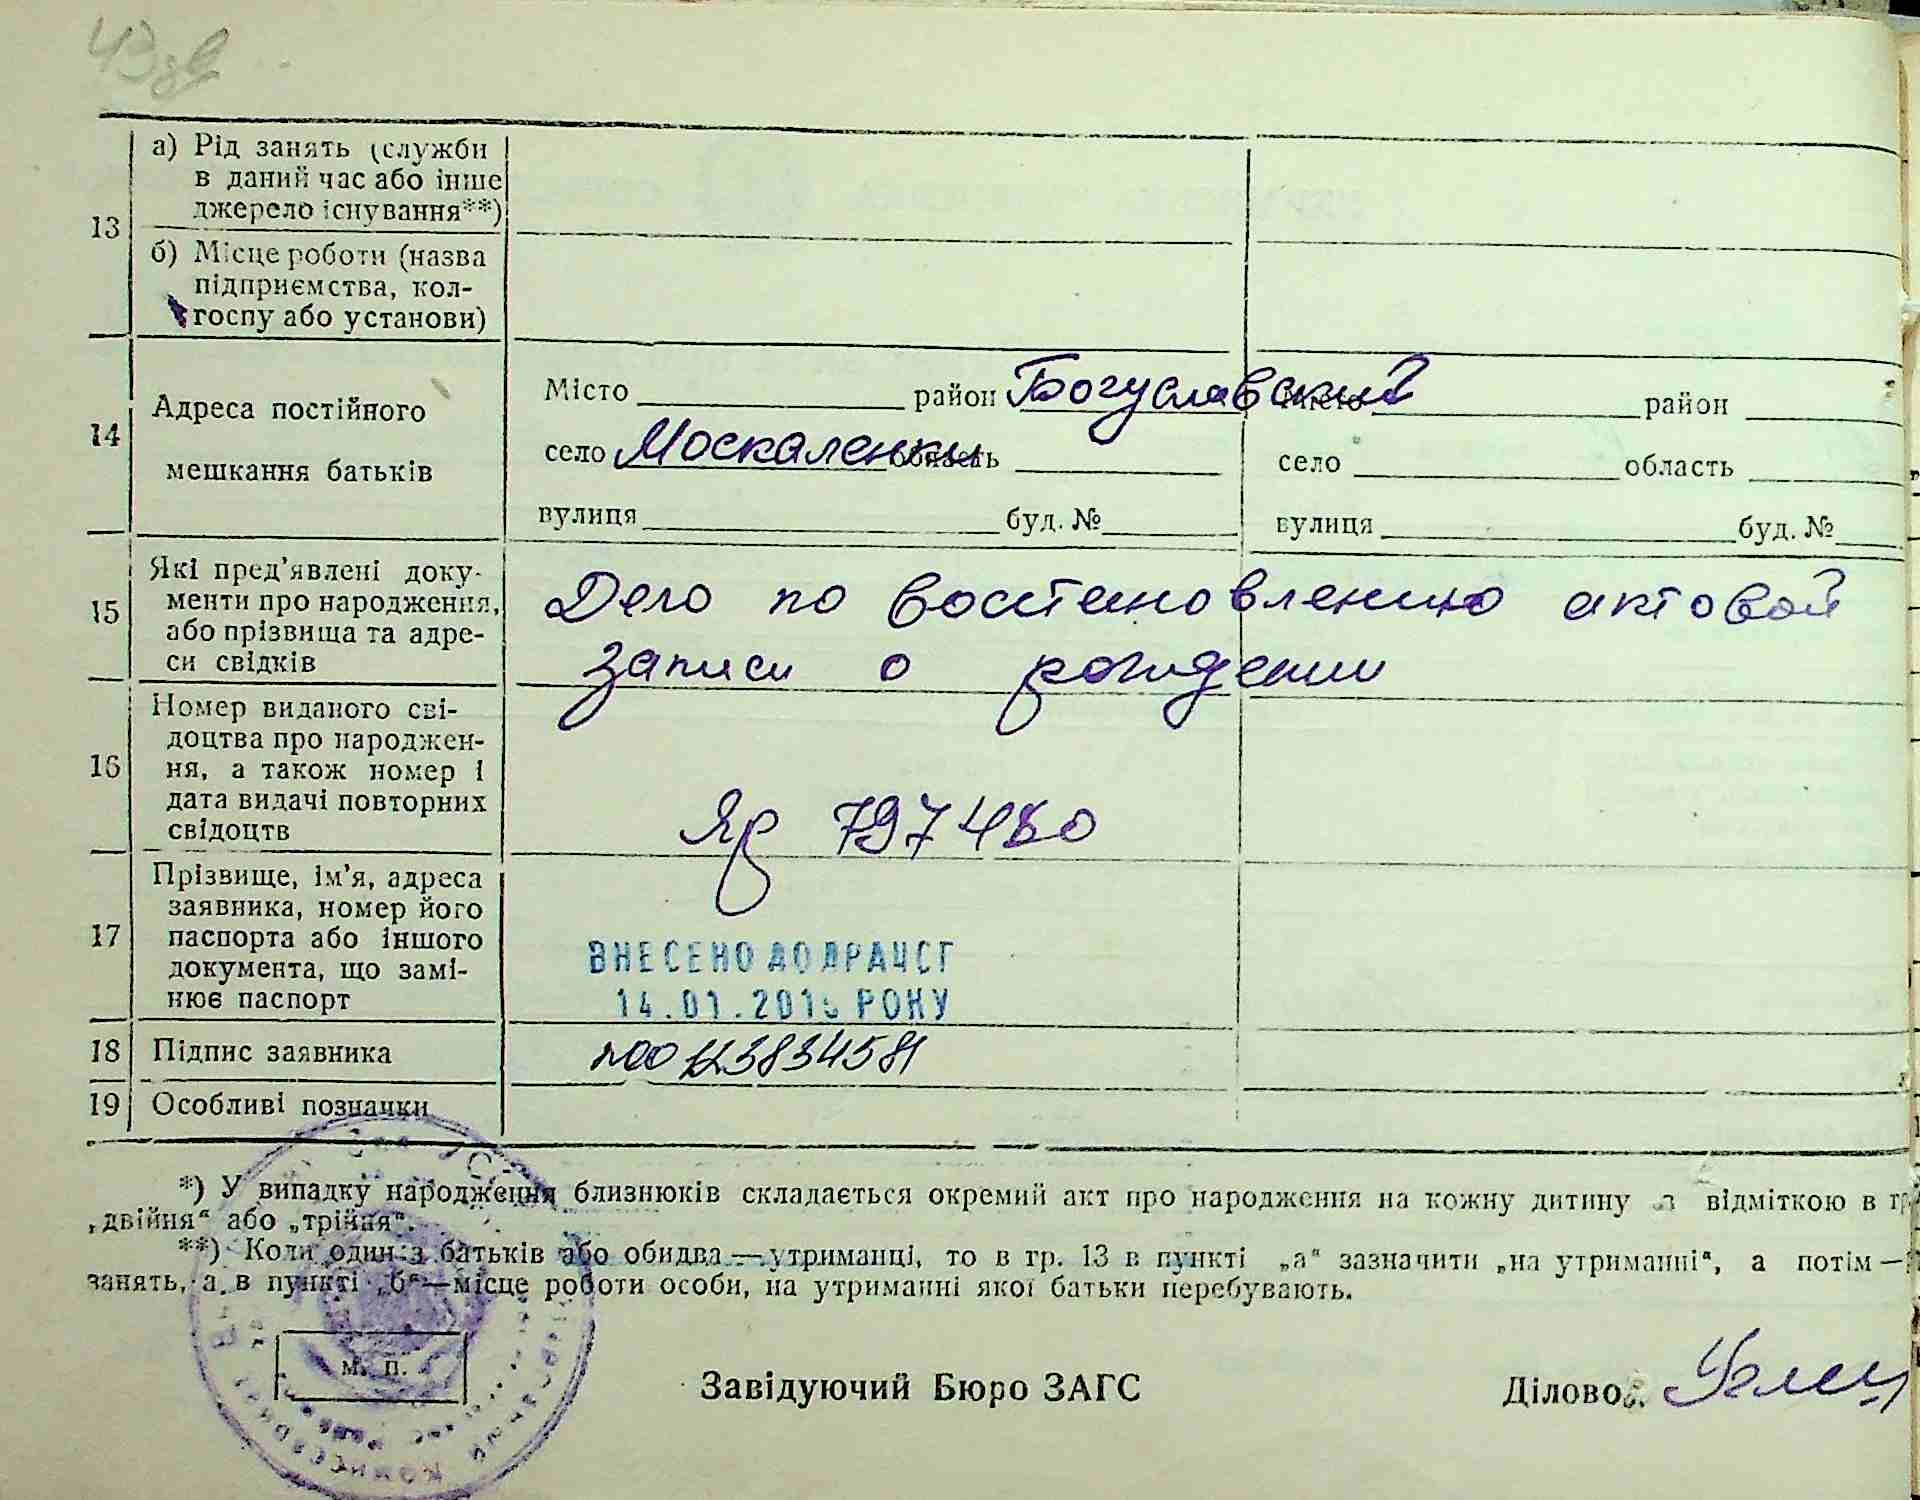 43зв
13
а) Рід занять (служби
в даний час або інше
джерело існування**)
б) Місце роботи (назва
підприємства, кол-
госпу або установи)
14
Адреса постійного
мешкання батьків
Місто район Богуславский Місто район
село Москаленки область село область
вулиця буд. № вулиця буд. №
15
Які пред'явлені доку-
менти про народження,
або прізвища та адре-
си свідків
Дело по восстановлению актовой
записи о рождении
16
Номер виданого сві-
доцтва про народжен-
ня, а також номер і
дата видачі повторних
свідоцтв
Яр 797480
17
Прізвище, ім'я, адреса
заявника, номер його
паспорта або іншого
документа, що замі-
нює паспорт
ВНЕСЕНО ДО ДРАЦСГ
14.01.2015 РОКУ
18 Підпис заявника
19 Особливі позначки
*) У випадку народження близнюків складається окремий акт про народження на кожну дитину з відміткою в гр
„двійня“ або „трійня“.
**) Коли один з батьків або обидва—утриманці, то в гр. 13 в пункті „а“ зазначити „на утриманні“, а потім—
занять, а в пункті „б“—місце роботи особи, на утриманні якої батьки перебувають.
м. п.
Завідуючий Бюро ЗАГС
Діловод